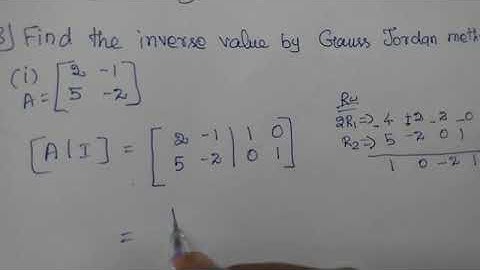 3) Find the inverse value by Gauss Jordan meth
(i) A = [2 -1
5 -2]
[A | I] = [2 -1 | 1 0
5 -2 | 0 1]
2R1 => -4 +2 -2 -0
R2 => 5 -2 0 1
1 0 -2 1
=